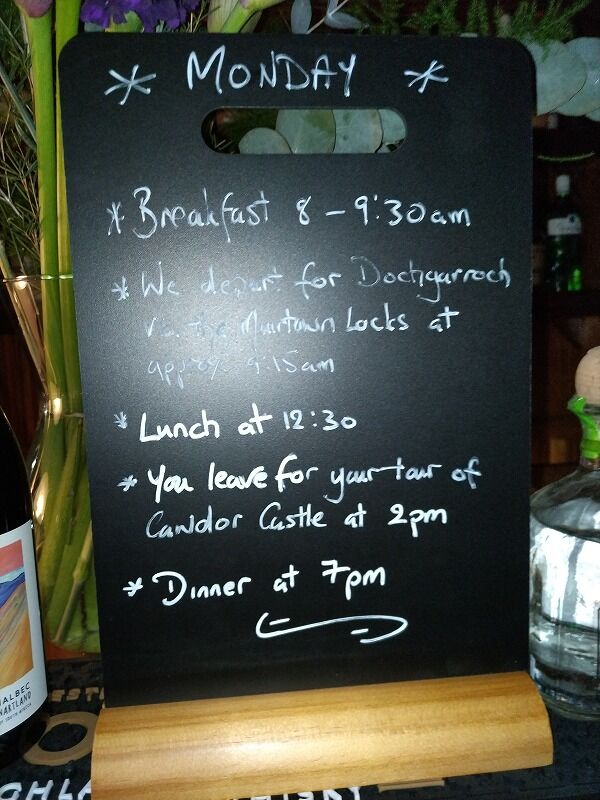 * MONDAY *
* Breakfast 8 - 9:30am
* We depart for Dochgarroch
via the Muirtown Locks at
approx 9:15am
* Lunch at 12:30
* You leave for your tour of
Cawdor Castle at 2pm
* Dinner at 7pm
MALBEC
HEARTLAND
OF SOUTH AFRICA